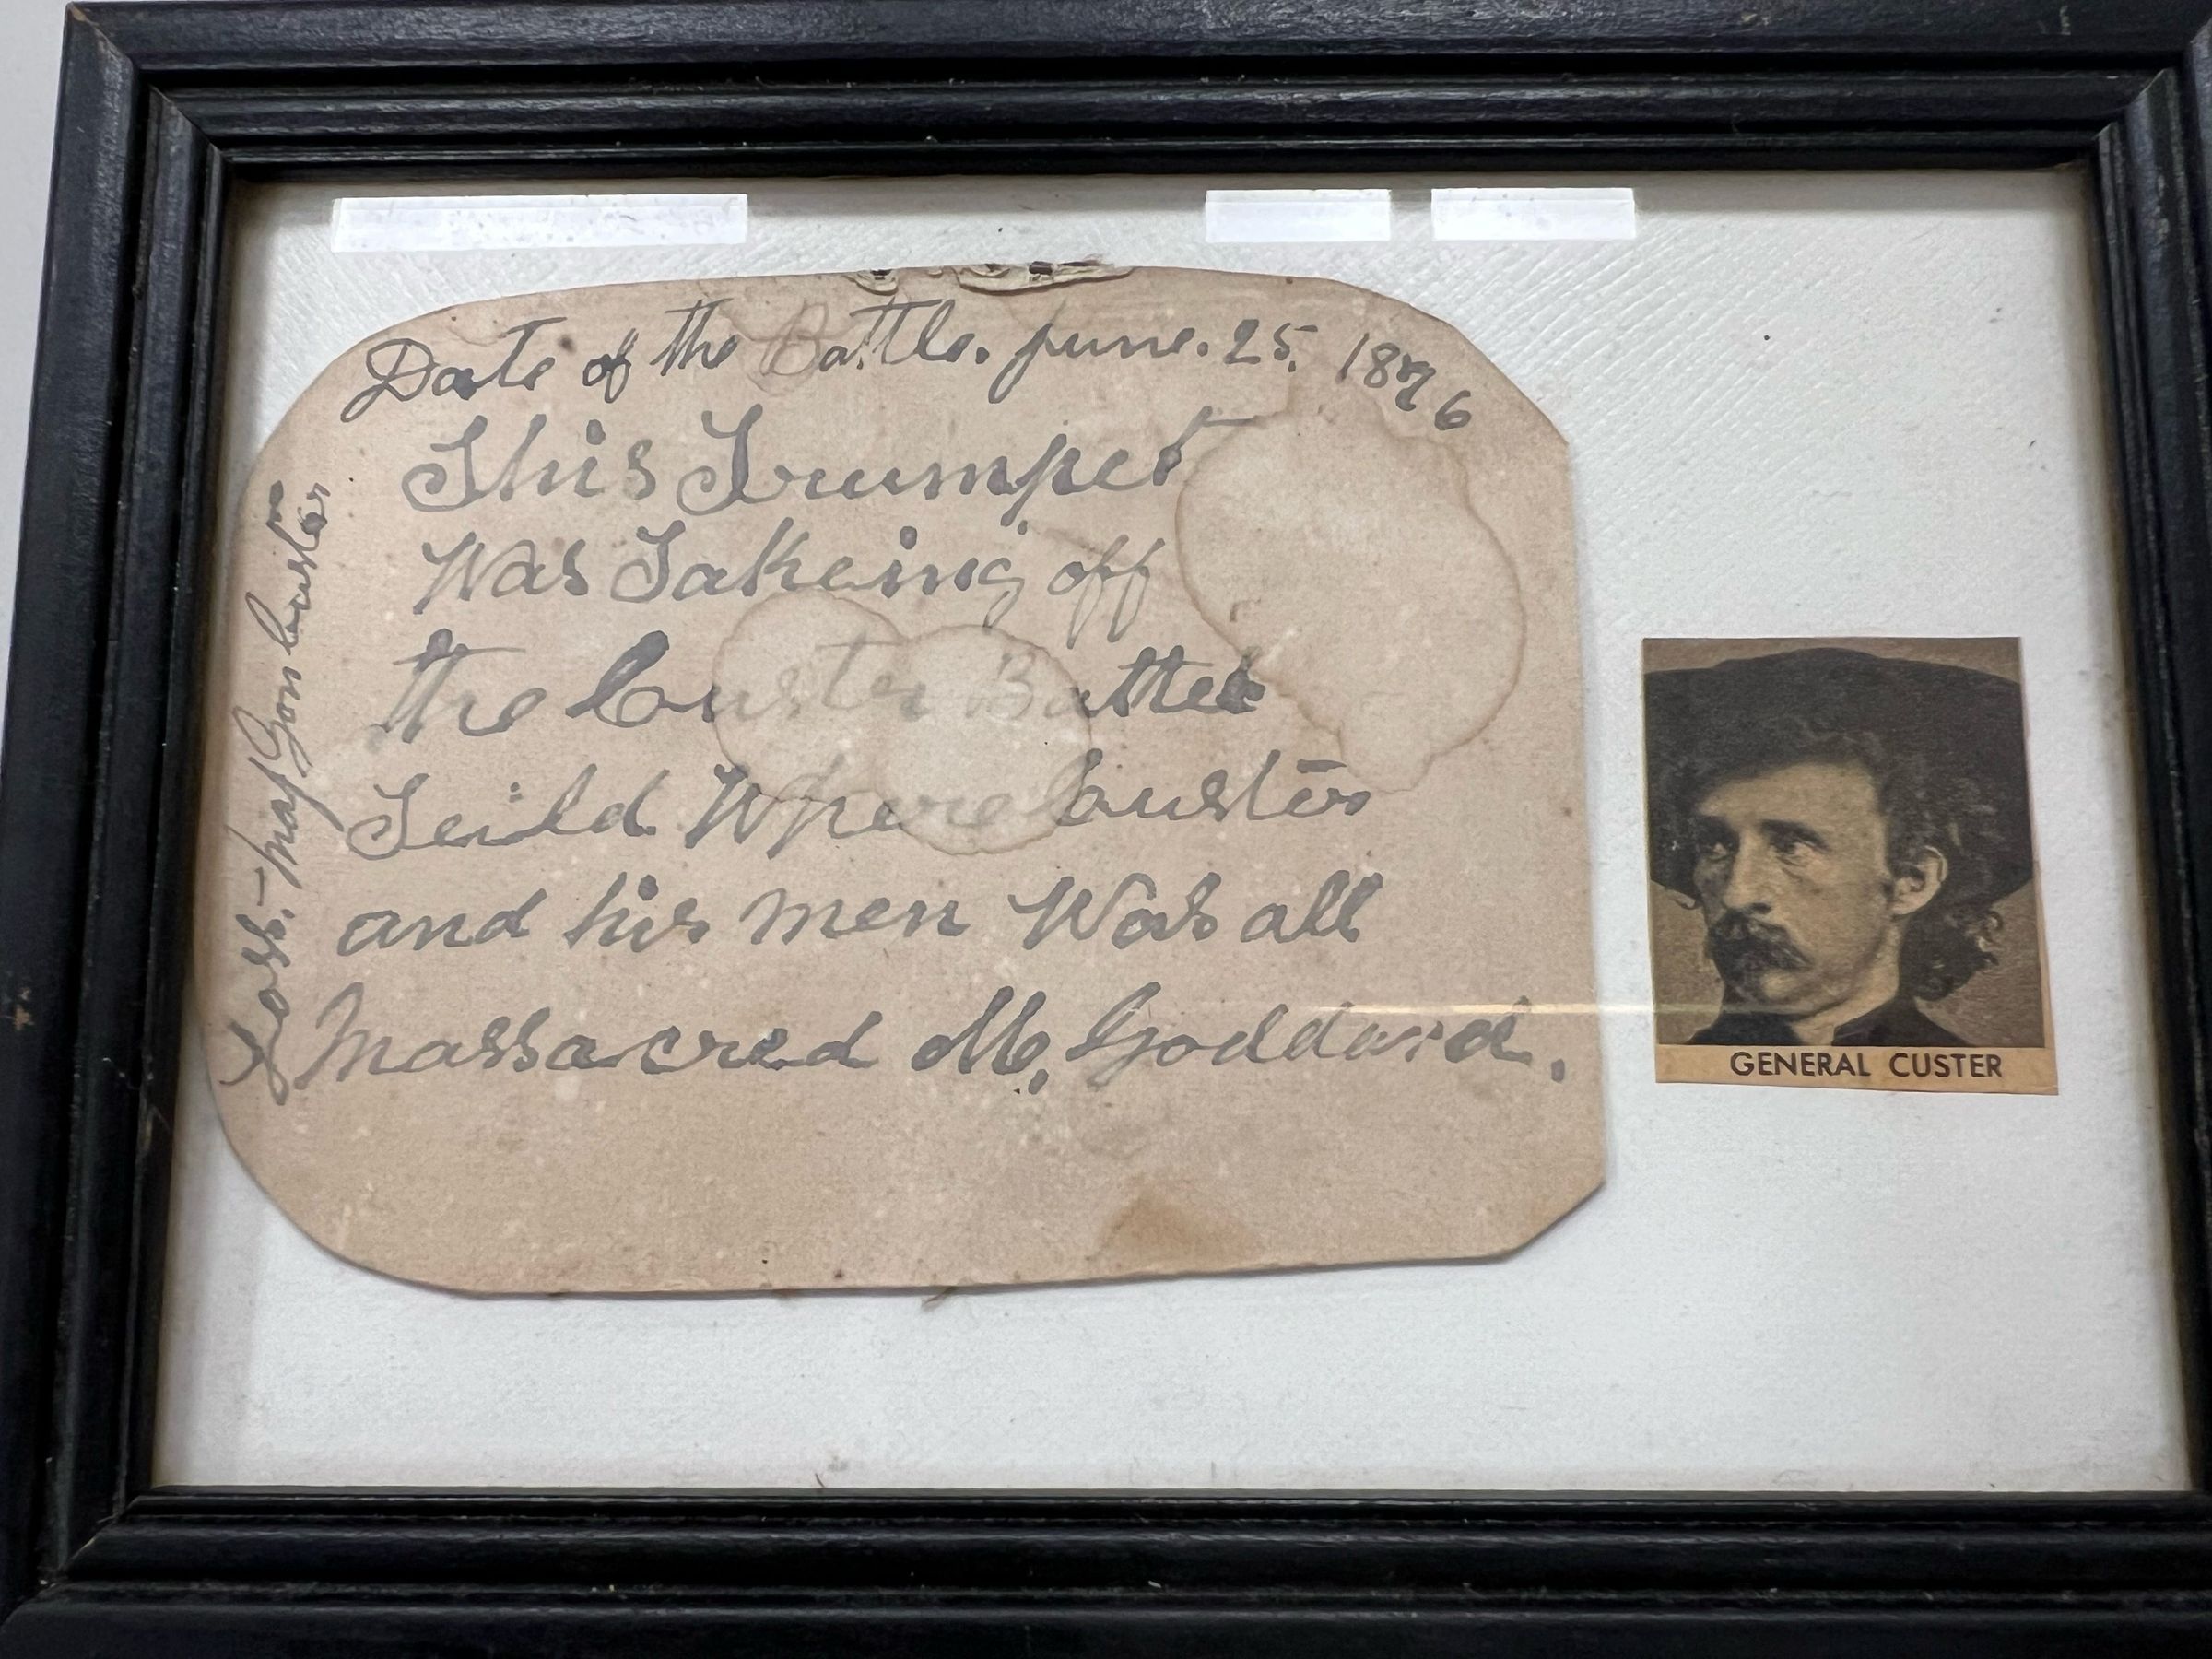 Date of the Battle. june. 25. 1876
This Trumpet
Was Takeing off
the Custer Battel
Feild Where Custer
and his men Was all
Massacred M. Goddard.
Loss. Maj Gen Custer
GENERAL CUSTER